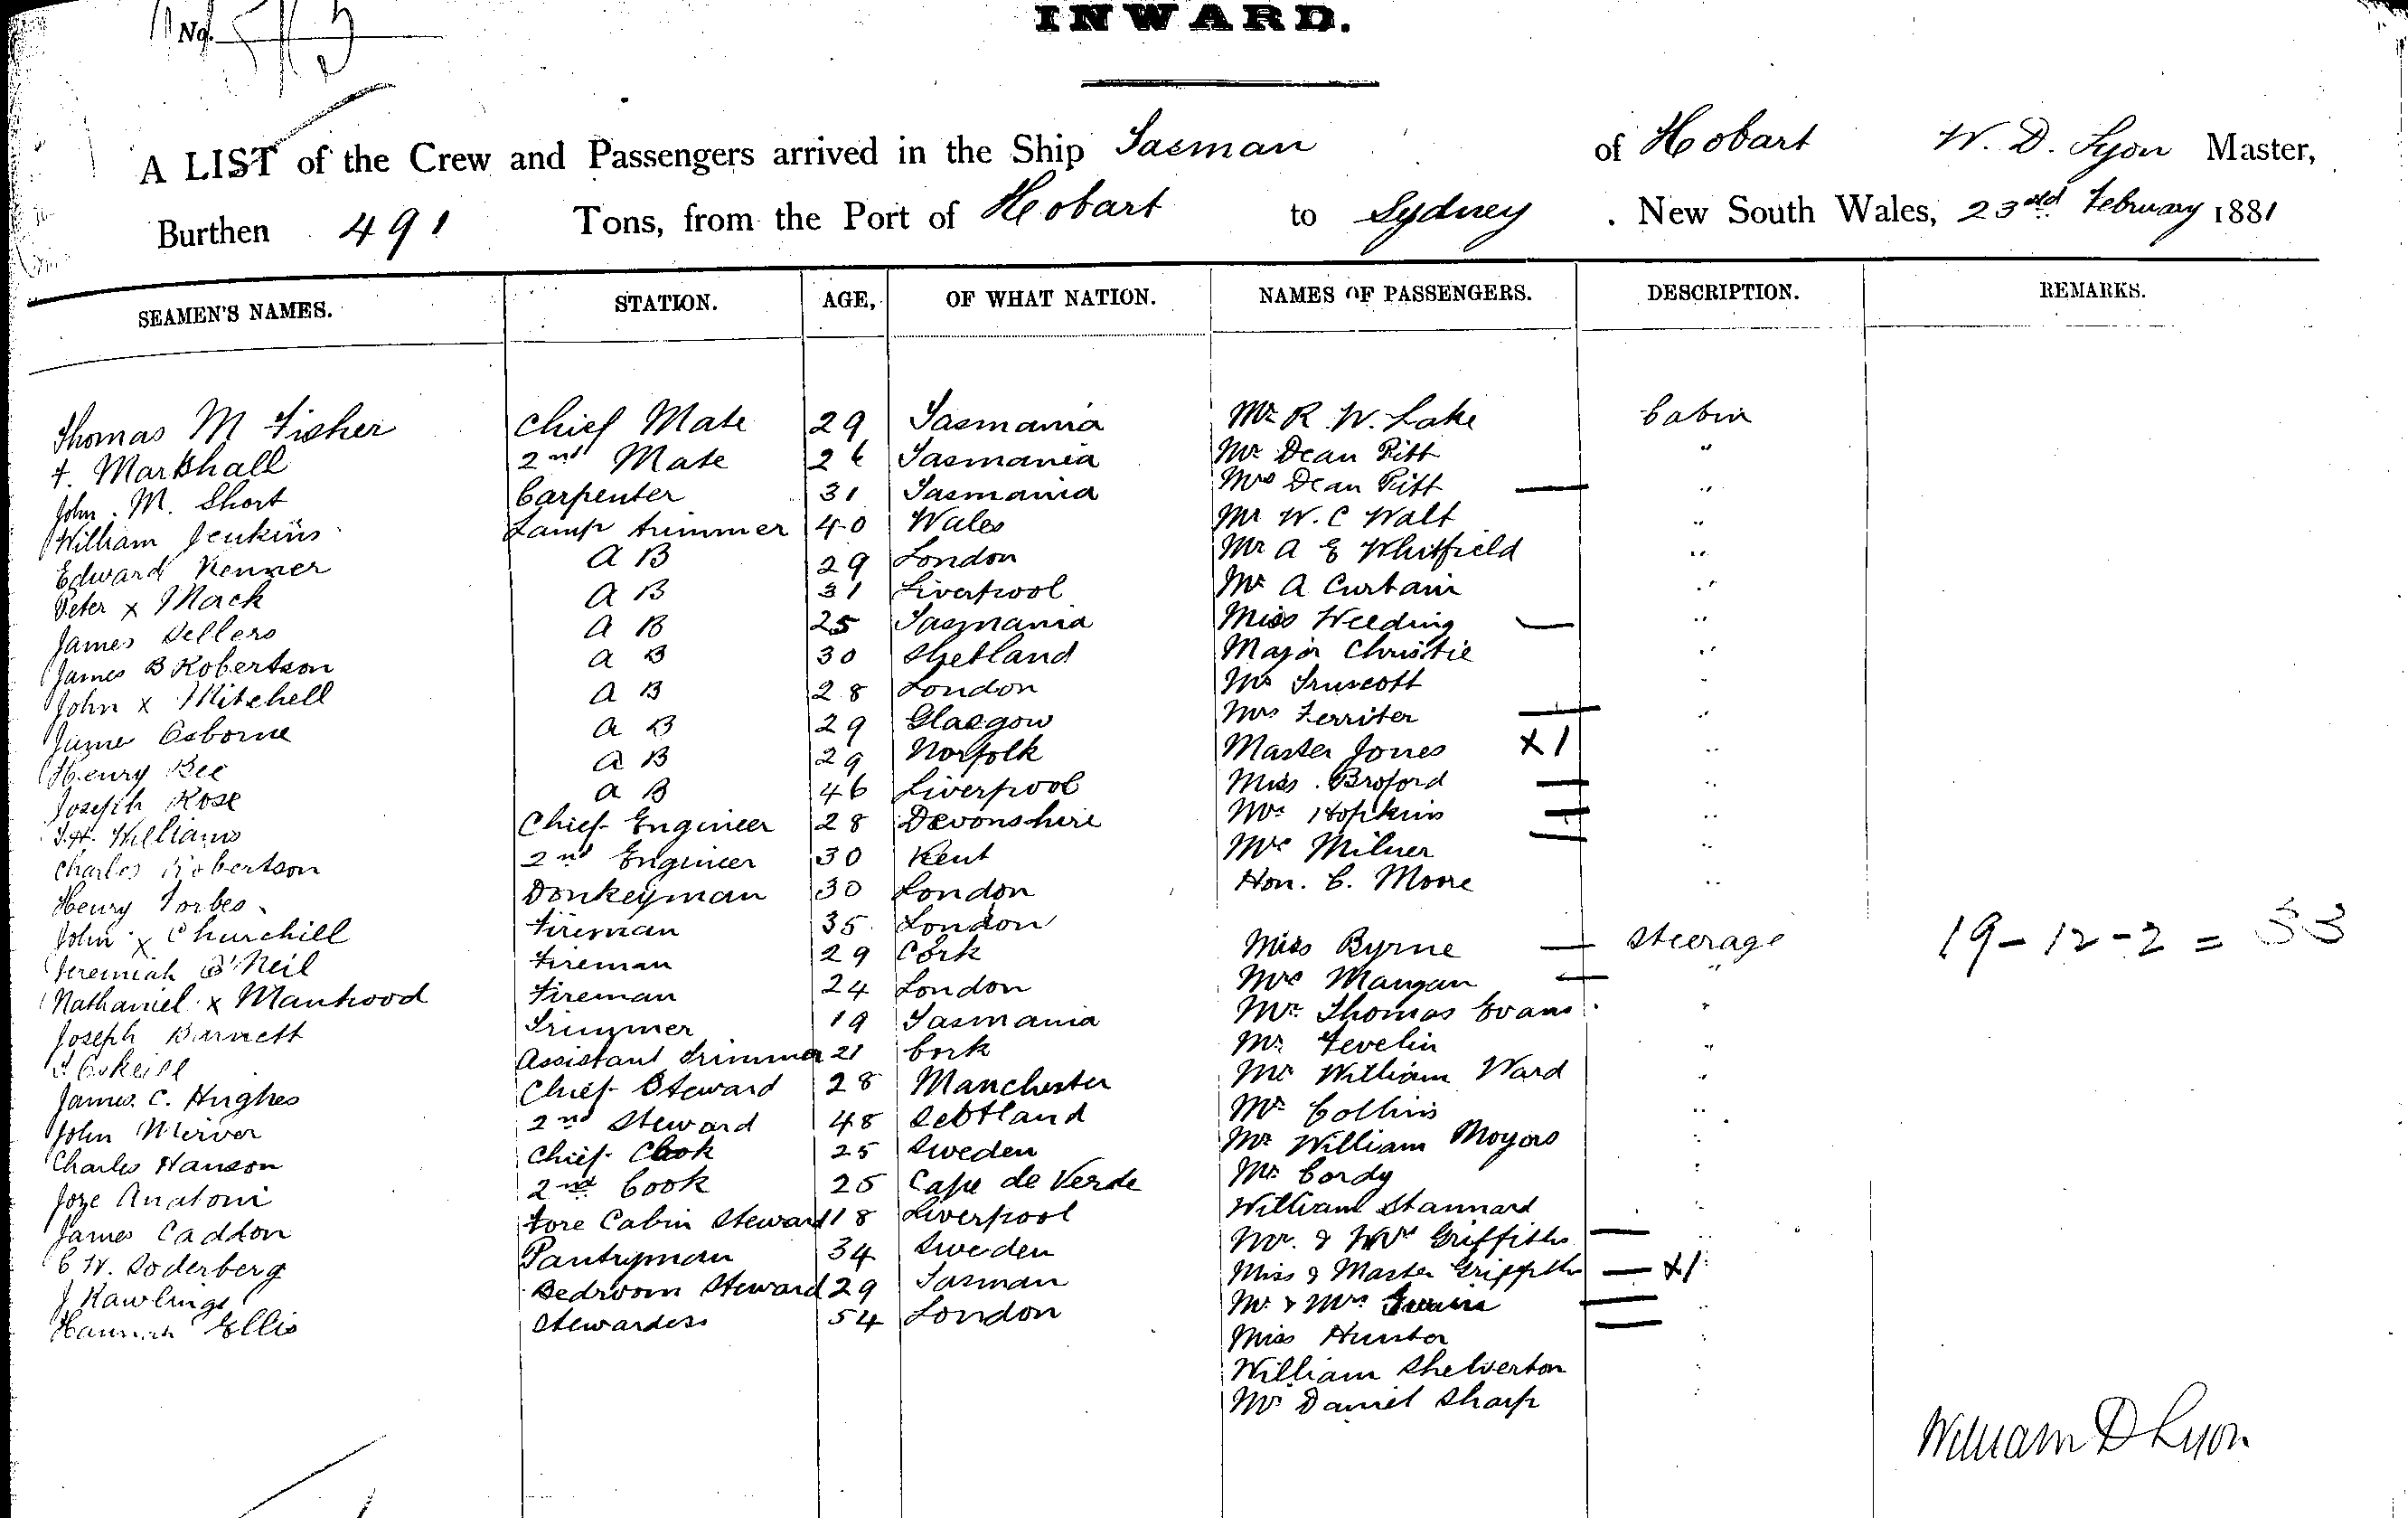 No. 513
INWARD.
A LIST of the Crew and Passengers arrived in the Ship Tasman of Hobart W. D. Lyon Master,
Burthen 491 Tons, from the Port of Hobart to Sydney . New South Wales, 23rd February 1881
SEAMEN'S NAMES. STATION. AGE, OF WHAT NATION. NAMES OF PASSENGERS. DESCRIPTION. REMARKS.
Thomas M Fisher Chief Mate 29 Tasmania Mr R. W. Lake Cabin
F. Marshall 2nd Mate 26 Tasmania Mr Dean Pitt "
John. M. Short Carpenter 31 Tasmania Mrs Dean Pitt — "
William Jenkins Lamp trimmer 40 Wales Mr W. C Walt "
Edward Kenner A B 29 London Mr A E Whitfield "
Peter x Mack A B 31 Liverpool Mr A Curtain "
James Sellers A B 25 Tasmania Miss Weeding — "
James B Robertson A B 30 Shetland Major Christie "
John x Mitchell A B 28 London Mr Truscott "
James Osborne A B 29 Glasgow Mrs Ferriter — "
Henry Bee A B 29 Norfolk Master Jones X1 "
Joseph Rose A B 46 Liverpool Miss. Broford — "
Williams Chief Engineer 28 Devonshire Hopkins — "
Charles Robertson 2nd Engineer 30 Kent Mrs Milner — "
Henry Forbes Donkeyman 30 London Hon. C. Moore "
John x Churchill Fireman 35 London
Jeremiah O'Neil Fireman 29 Cork Miss Byrne — Steerage 19-12-2 = 33
Nathaniel x Manhood Fireman 24 London Mrs Mangan — "
Joseph Barnett Trimmer 19 Tasmania Mr. Thomas Evans "
Assistant Trimmer 21 Cork Mr Fevelin "
James. C. Hughes Chief Steward 28 Manchester Mr William Ward "
John 2nd Steward 48 Scotland Mr Collins "
Charles Hanson Chief Cook 25 Sweden Mr William Moyers "
Joze Anatoni 2nd Cook 25 Cape de Verde Mr. Cordy "
James Caddon Fore Cabin Steward 18 Liverpool William Stannard "
C W. Soderberg Pantryman 34 Sweden Mr. & Mrs Griffiths — "
J Rawlings Bedroom Steward 29 Tasman Miss & Master Griffiths — X1 "
Hannah Ellis Stewardess 54 London Mr & Mrs — "
Miss Hunter — "
William Shelverton "
Mr Daniel Sharp "
William D Lyon